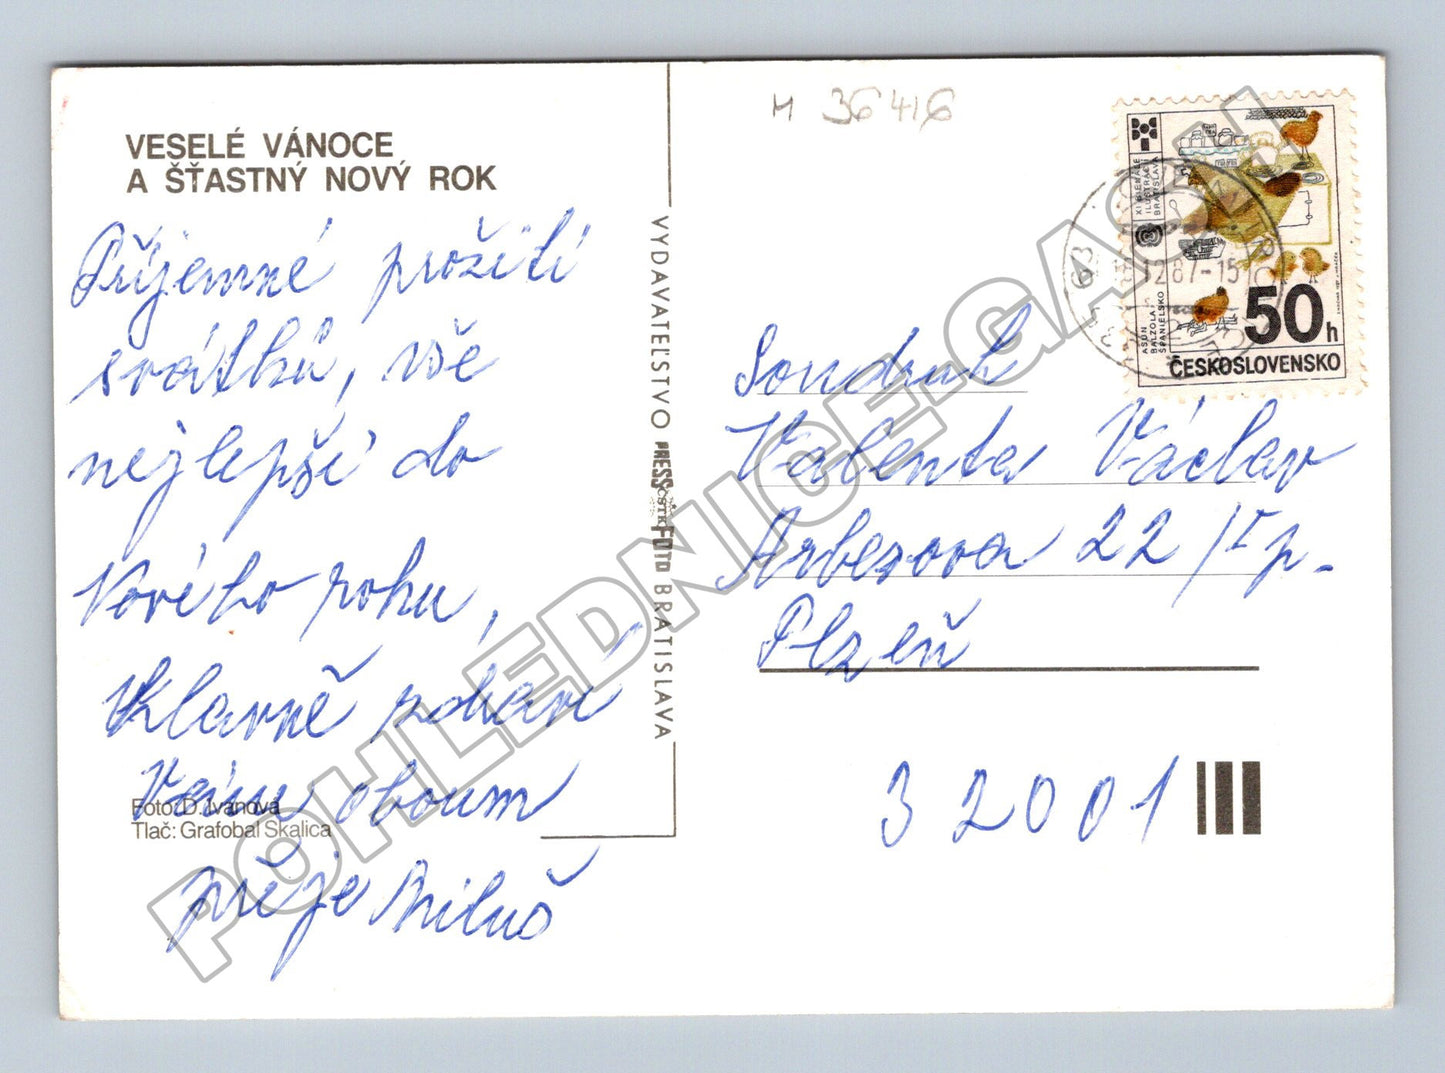 VESELÉ VÁNOCE
A ŠŤASTNÝ NOVÝ ROK
Příjemné prožití
svátků, vše
nejlepší do
Nového roku,
hlavně zdraví
Vám oboum
přeje Miluš
Foto: D. Ivanová
Tlač: Grafobal Skalica
VYDAVATEĽSTVO PRESSFOTO BRATISLAVA
ČSTK
M 36416
XI BIENALE
ILUSTRÁCIÍ
BRATISLAVA
ASUN
BALZOLA
ŠPANIELSKO
50h
ČESKOSLOVENSKO
287-15
Soudruh
Valenta Václav
Arbesova 22 /I p.
Plzeň
32001
POHLEDNICE.GASH